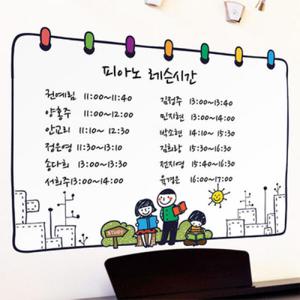 피아노 레슨시간
권예림 11:00~11:40
양홍주 11:00~12:00
안교리 11:10~12:30
정은영 11:30~13:10
송다희 13:00~14:00
서희주 13:00~14:00
김정주 13:00~13:40
민지현 13:00~14:00
박소현 14:10~15:30
김희랑 15:30~16:30
전지영 15:40~16:30
육경은 16:00~17:00
STUDY